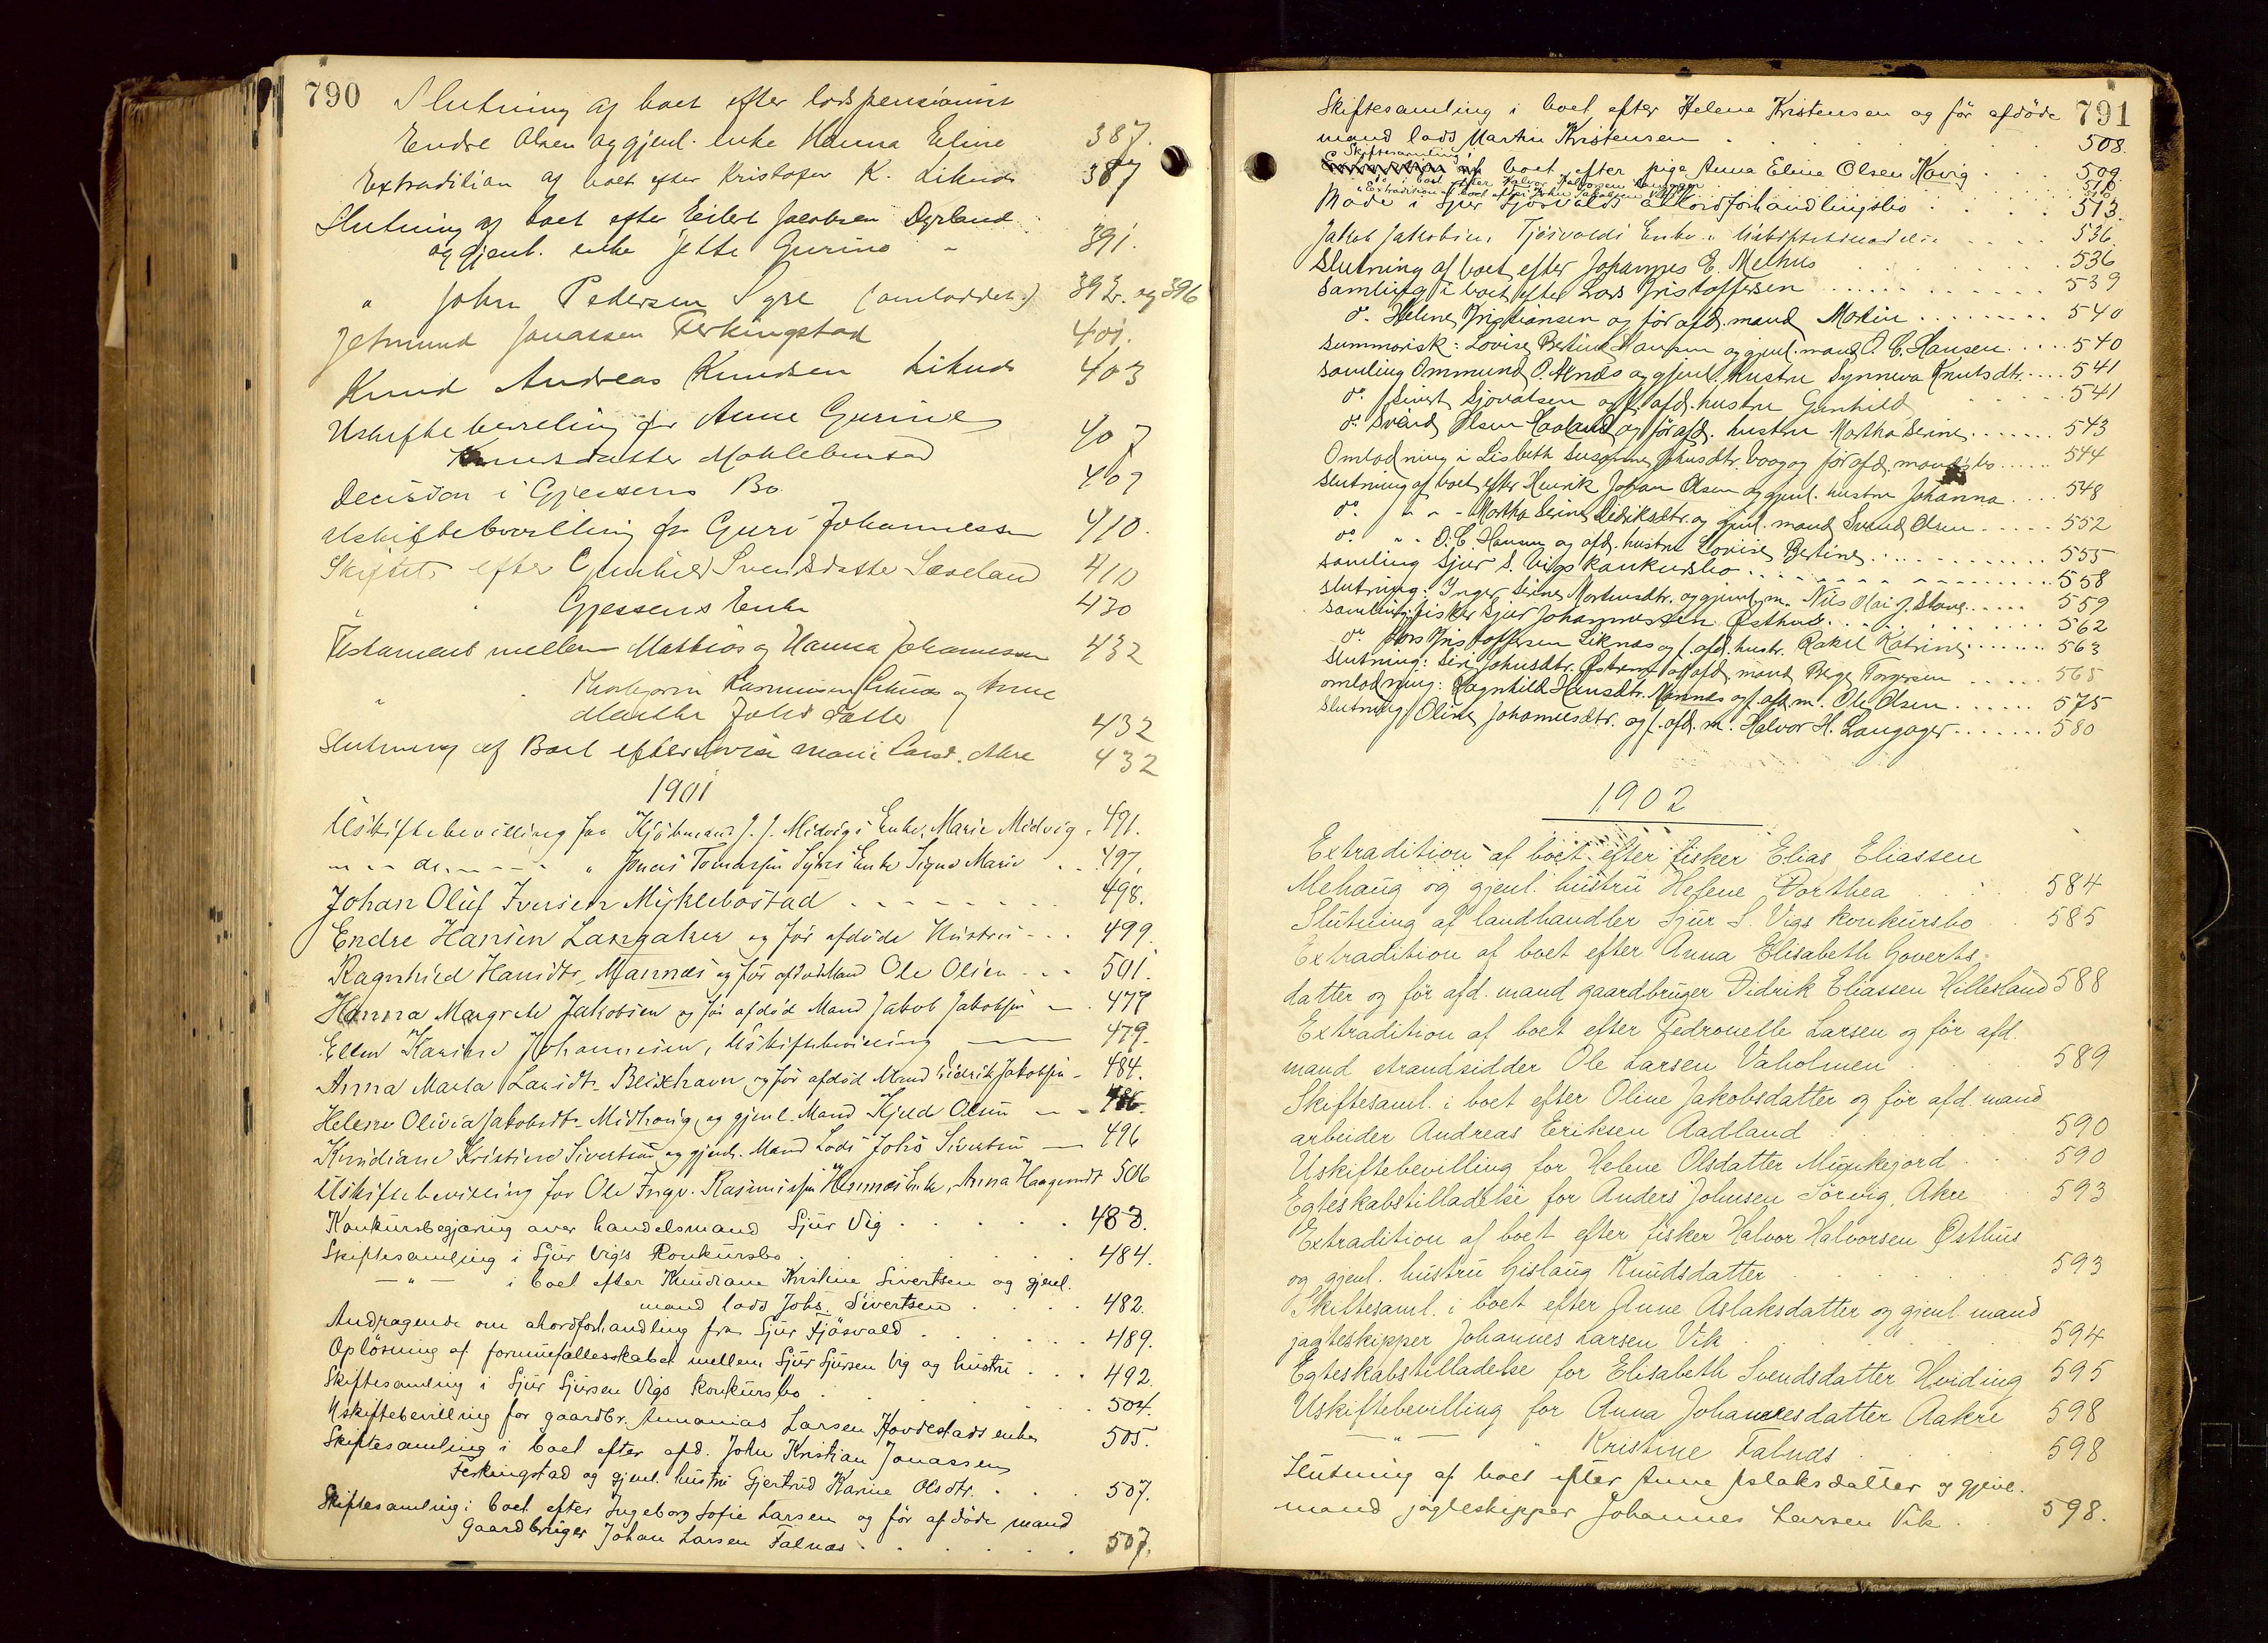 790
Slutning af boet efter lodspensionist
Endre Olsen og gjenl. enke Hanna Eline 387.
Extradition af boet efter Kristofer K. Liknes 387
Slutning af boet efter Eilert Jacobsen Dyrland
og gjenl. enke Jette Gurine " 391.
" John Pedersen Syre (omloddet.) 392. og 396
Jetmund Jonassen Ferkingstad 401.
Knud Andreas Knudsen Liknes 403
Uskiftebevilling for Anne Gurine
Knutsdatter Mokleboestad 407
Decision i Gjessens Bo 409
Uskiftebevilling for Guri Johannessen 410.
Skiftet efter Gunhild Svendsdatter Sæveland 410
" " Gjessens Enke 430
Testament mellem Mathias og Hanna Johannesen 432
" Thorbjørn Rasmussen Liknes og Anne
Marthe Johsdatter 432
Slutning af Boet efter Lovise Marie Carsd. Akre 432
1901
Uskiftebevilling for Kjøbmand J. J. Midvigs Enke, Marie Midvig. 491.
" - - do. - - - - " Jonas Tomassen Syres Enke Signe Marie . . 497.
Johan Oluf Iversen Myklebostad - - - - - 498.
Endre Hansen Langaker og før afdøde Hustru - - . 499.
Ragnhild Hansdtr. Mannes og før afdøde Mand Ole Olsen - - - 501.
Hanna Margrete Jakobsen og før afdød Mand Jakob Jakobsen - . 477
Ellen Karine Johannesen, Uskiftebevilling — — 479.
Anna Marta Larsdtr. Bleixhavn og før afdød Mand Didrik Jakobsen - 484.
Helene Olivia Jakobsdtr. Midhaug og gjenl. Mand Kjeld Olsen - - - 486
Knudiane Kristine Sivertsen og gjenl. Mand Lods Johs Sivertsen — 496
Uskiftebevilling for Ole Ingv. Rasmussen Hemnes Enke, Anna Haagensdt 506
Konkursbegjæring over handelsmand Sjur Vig . . . . . 483.
Skiftesamling i Sjur Vigs Konkursbo . . . . . . 484.
— " — i boet efter Knudiane Kristine Sivertsen og gjenl.
mand lods Johs. Sivertsen . . . . 482.
Andragende om akordforhandling fra Sjur Tjösvold . . . . . 489.
Oplösning af formuefællesskabet mellem Sjur Sjursen Vig og hustru . . . 492.
Skiftesamling i Sjur Sjursen Vigs Konkursbo . . . . . . 504.
Uskiftebevilling for gaardbr. Annanias Larsen Hovdestads enke 505.
Skiftesamling i boet efter afd. John Kristian Jonassen
Ferkingstad og gjenl. hustru Gjertrud Karine Olsdtr. . . . 507.
Skiftesamling i boet efter Ingeborg Sofie Larsen og för afdöde mand
Gaardbruger Johan Larsen Falnæs . . . . . . 507.
791
Skiftesamling i boet efter Helene Kristensen og för afdöde
mand lods Martin Kristensen . . . . . . 508.
Skiftesamling i boet efter pige Anna Eline Olsen Kovig . . . 509
do i boet efter Halvor Halvorsen 510
" Extradition af boet efter John Jakobsen
Möde i Sjur Tjösvolds akkordforhandlingsbo . . . . . 513.
Jakob Jakobsens Tjösvolds Enke. Uskiftetbevilling . . . . 536.
Slutning af boet efter Johannes E. Melhus . . . . . 536
Samling i boet efter Lars Kristoffersen . . . . . . 539
do. Helene Kristiansen og för afd. mand Martin . . . . . . 540
Summarisk: Lovise Bertine Hansen og gjenl. mand O. C. Hansen . . . . 540
Samling Ommund O. Aknes og gjenl. hustru Synneva Knutsdtr. . . . 541
do. Sivert Sjovatsen og f. afd. hustru Gunhild . . . . . 541
do. Svend Olsen Haaland og för afd. hustru Martha Serine . . . . . . . 543
Omlodning i Lisbeth Susanne Johnsdtr. Vaag og för afd. mands bo . . . . . . 544
Slutning af boet efter Henrik Johan Olsen og gjenl. hustru Johanna . . . 548
do. " " - Martha Serine Didriksdtr. og gjenl. mand Svend Olsen . . . . . 552
do. " - O. C. Hansen og afd. hustru Lovise Bertine . . . . . . . . . 555
Samling Sjur S. Vigs konkursbo . . . . . . . . . . 558
Slutning: Inger Serine Mortensdtr. og gjenl. m. Nils Olai J. Stave . . . . . 559
Samling: fisker Sjur Johannessen Østhus . . . . . . . . 562
do. Lars Kristoffersen Liknæs og f. afd. hustr. Rakel Katrine . . . . . . 563
Slutning: Siri Johnsdtr. Østrem og afd. mand Berge Torgersen . . . . . 565
omlodning: Ragnhild Hansdtr. Mannes og f. afd. m. Ole Olsen . . . . . . 575
Slutning: Oline Johannesdtr. og f. afd. m. Halvor H. Langager . . . . . . . 580
1902
Extradition af boet efter fisker Elias Eliassen
Mehaug og gjenl. hustru Helene Dorthea . . . 584
Slutning af landhandler Sjur S. Vigs konkursbo . 585
Extradition af boet efter Anna Elisabeth Goverts-
datter og för afd. mand gaardbruger Didrik Eliassen Hillesland 588
Extradition af boet efter Pedronelle Larsen og för afd.
mand strandsidder Ole Larsen Vaholmen . . . 589
Skiftesaml. i boet efter Oline Jakobsdatter og för afd. mand
arbeider Andreas Eriksen Aadland . . . . . 590
Uskiftebevilling for Helene Olsdatter Munkejord . . 590
Egteskabstilladelse for Anders Johnsen Sörvig, Akre . . 593
Extradition af boet efter fisker Halvor Halvorsen Østhus
og gjenl. hustru Gislaug Knudsdatter . . . . . 593
Skiftesaml. i boet efter Anne Aslaksdatter og gjenl. mand
jagteskipper Johannes Larsen Vik . . . . . 594
Egteskabstilladelse for Elisabeth Svendsdatter Hviding 595
Uskiftebevilling for Anna Johannesdatter Aakre 598
— " — " Kristine Falnæs . . . 598
Slutning af boet efter Anne Aslaksdatter og gjenl.
mand jagteskipper Johannes Larsen Vik . . 598.